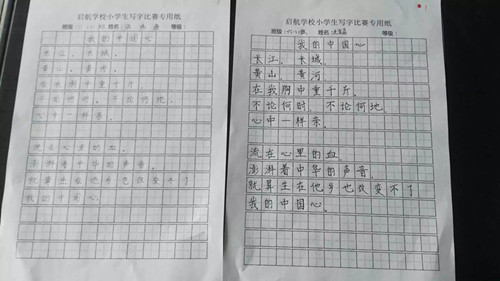 启航学校小学生写字比赛专用纸
班级: 姓名: 等级:
我的中国心
长江、长城,
黄山、黄河,
在我胸中重千斤,
不论何时,不论何地,
心中一样亲。
流在心里的血,
澎湃着中华的声音,
就算生在他乡也改变不了
我的中国心
启航学校小学生写字比赛专用纸
班级: 姓名: 等级:
我的中国心
长江、长城,
黄山、黄河,
在我胸中重千斤,
不论何时,不论何地,
心中一样亲。
流在心里的血,
澎湃着中华的声音,
就算生在他乡也改变不了
我的中国心。